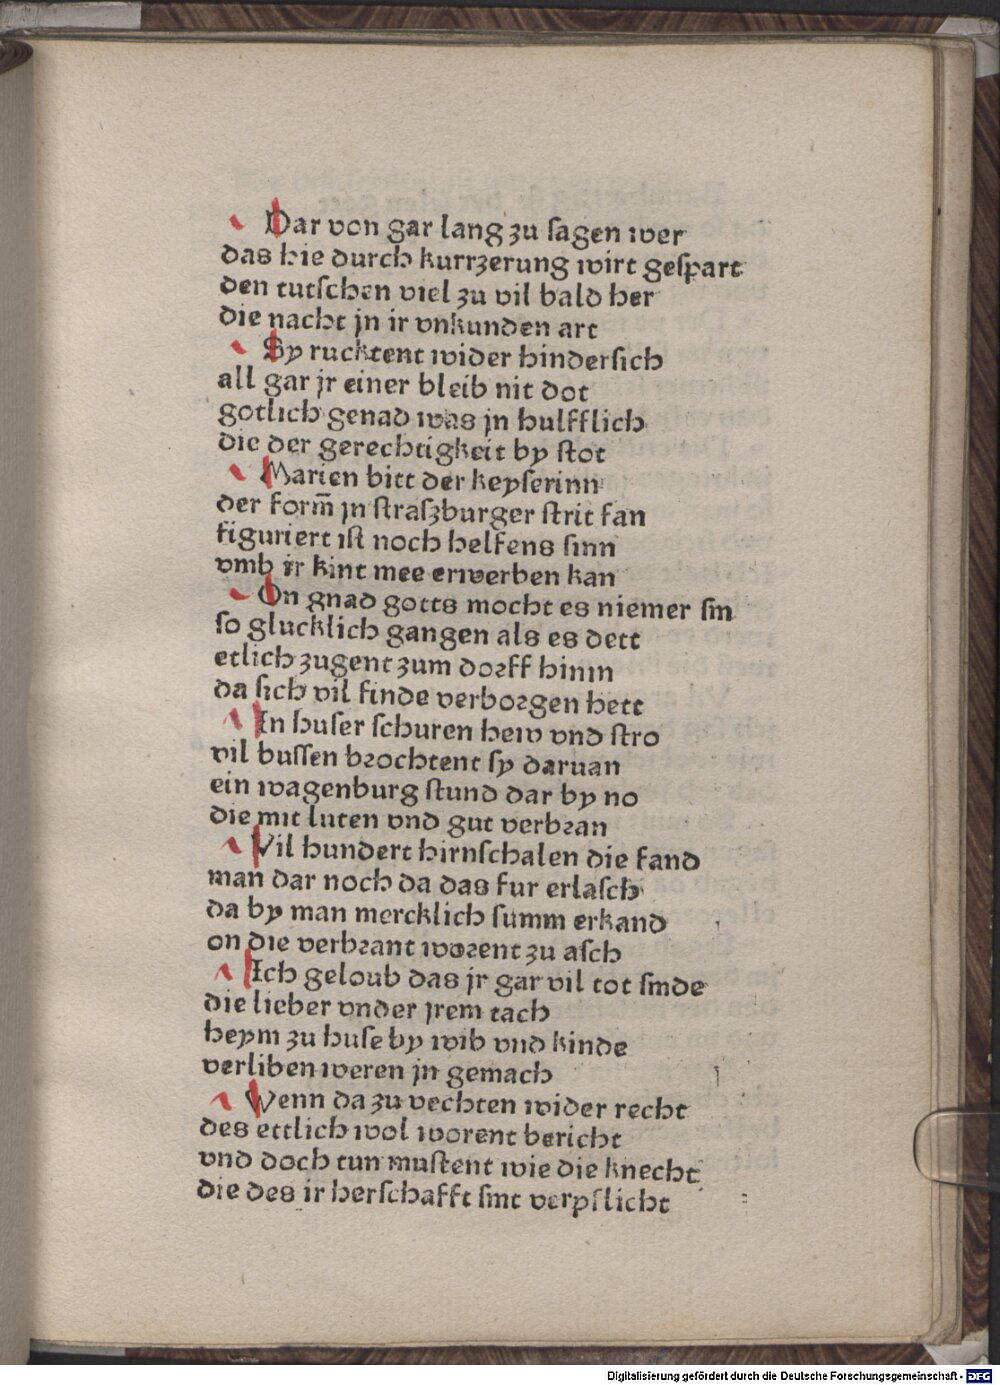 Dar von gar lang zu sagen wer
das hie durch kurrzerung wirt gespart
den tutschen viel zu vil bald her
die nacht jn ir vnkunden art
Sy rucktent wider hindersich
all gar jr einer bleib nit dot
gotlich genad was jn hulfflich
die der gerechtigkeit by stot
Marien bitt der keyserinn
der form̄ jn straszburger strit fan
figuriert ist noch helfens sinn
vmb ir kint mee erwerben kan
On gnad gotts mocht es niemer sin
so glucklich gangen als es dett
etlich zugent zum dorff hinin
da sich vil finde verborgen hett
In huser schuren hew vnd stro
vil bussen brochtent sy daruan
ein wagenburg stund dar by no
die mit luten vnd gut verbran
Vil hundert hirnschalen die fand
man dar noch da das fur erlasch
da by man mercklich summ erkand
on die verbrant worent zu asch
Ich geloub das jr gar vil tot sinde
die lieber vnder jrem tach
heym zu huse by wib vnd kinde
verliben weren jn gemach
Wenn da zu vechten wider recht
des ettlich wol worent bericht
vnd doch tun mustent wie die knecht
die des ir herschafft sint verpflicht
Digitalisierung gefördert durch die Deutsche Forschungsgemeinschaft - DFG